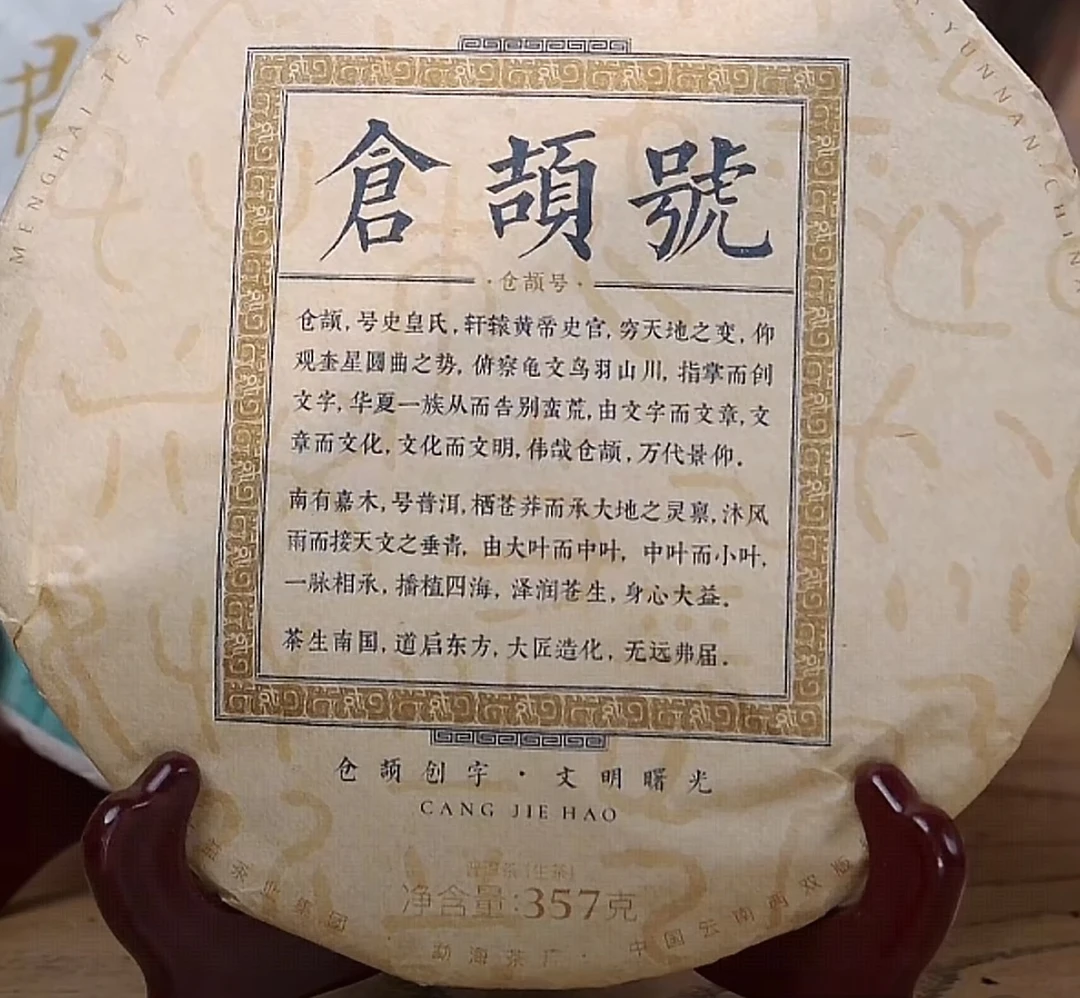 MENGHAI TEA
YUNNAN, CHINA
倉頡號
·仓颉号·
仓颉,号史皇氏,轩辕黄帝史官,穷天地之变,仰
观奎星圆曲之势,俯察龟文鸟羽山川,指掌而创
文字,华夏一族从而告别蛮荒,由文字而文章,文
章而文化,文化而文明,伟哉仓颉,万代景仰.
南有嘉木,号普洱,栖苍莽而承大地之灵禀,沐风
雨而接天文之垂青,由大叶而中叶,中叶而小叶,
一脉相承,播植四海,泽润苍生,身心大益.
茶生南国,道启东方,大匠造化,无远弗届.
仓颉创字·文明曙光
CANG JIE HAO
普洱茶(生茶)
净含量:357克
益茶业集团
勐海茶厂·中国云南西双版